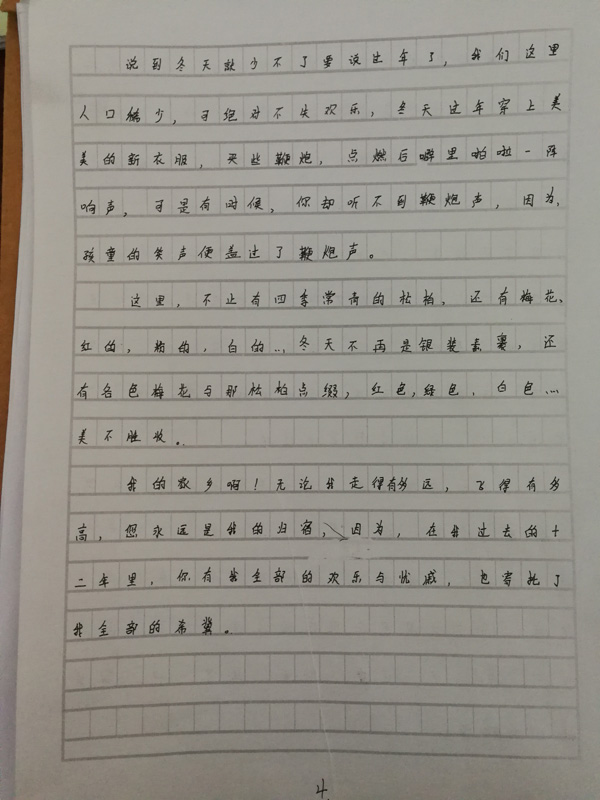 说到冬天就少不了要说过年了，我们这里
人口稀少，可绝对不失欢乐，冬天过年穿上美
美的新衣服，买些鞭炮，点燃后噼里啪啦一阵
响声，可是有时候，你却听不到鞭炮声，因为，
孩童的笑声便盖过了鞭炮声。
这里，不止有四季常青的松柏，还有梅花、
红的，粉的，白的…冬天不再是银装素裹，还
有各色梅花与那松柏点缀，红色，绿色、白色…
美不胜收。
我的家乡啊！无论我走得有多远，飞得有多
高，您永远是我的归宿，因为，在我过去的十
二年里，你有我全部的欢乐与忧戚，也寄托了
我全部的希冀。
4